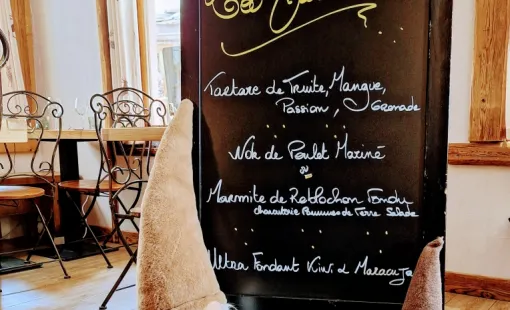 Tartare de Truite, Mangue,
Passion, Grenade
Wok de Poulet Mariné
ou
Marmite de Reblochon Fondu
charcuterie Pommes de Terre Salade
Ultra Fondant Kiwi & Maracuja